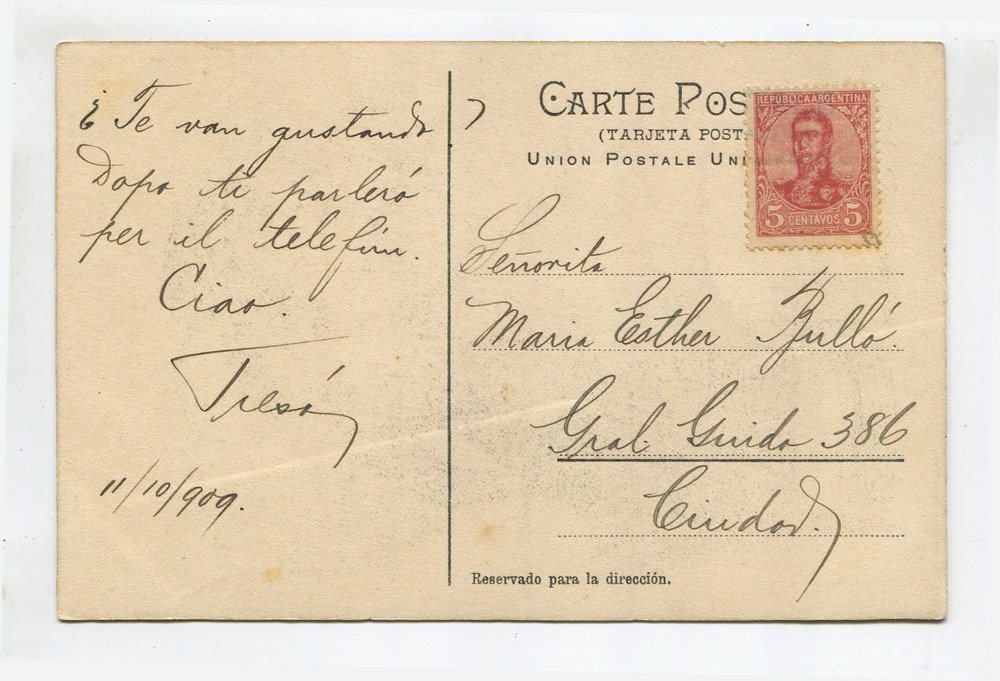 ¿ Te van gustando ?
Dopo ti parleró
per il telefún.
Ciao.
11/10/909.
CARTE POS
(TARJETA POST
UNION POSTALE UNI
REPUBLICA ARGENTINA
5 CENTAVOS 5
Señorita
Maria Esther Bulló.
Gral. Guido 386
Ciudad.
Reservado para la dirección.